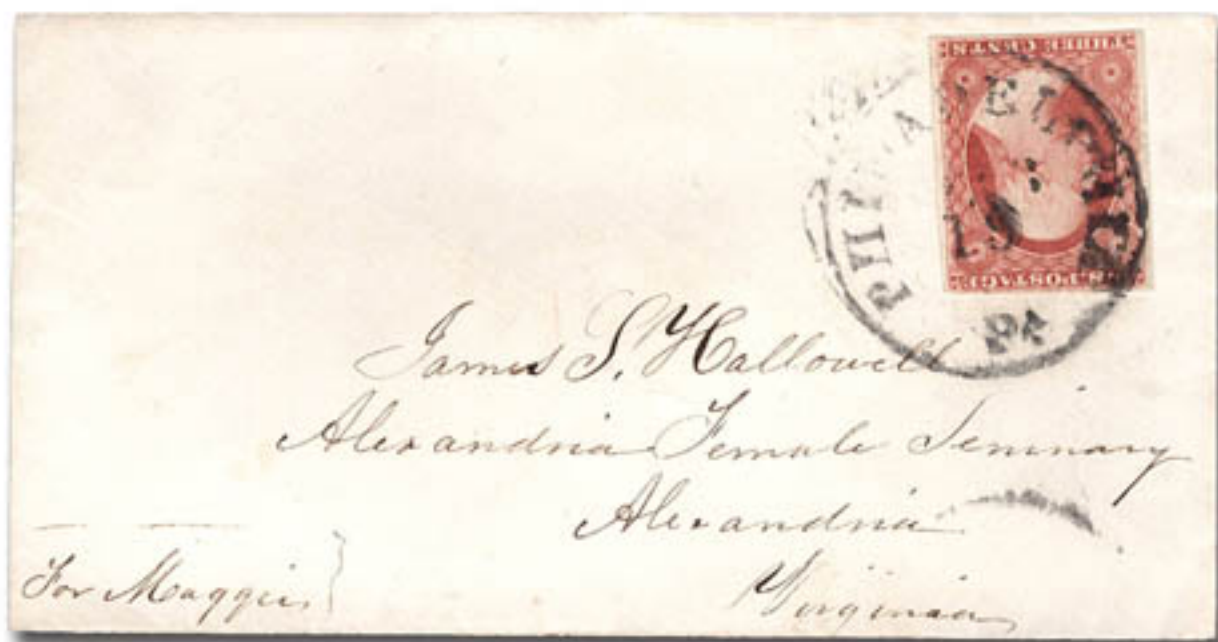 THREE CENTS
U.S. POSTAGE
PHILADELPHIA
19
Pa
James S. Hallowell
Alexandria Female Seminary
Alexandria
Virginia
For Maggie.